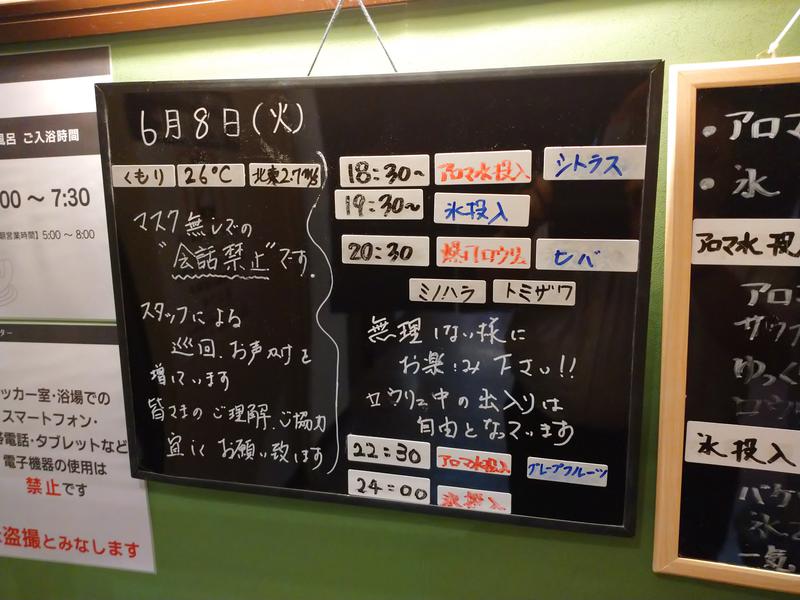 風呂 ご入浴時間
00 〜 7:30
営業時間】5:00 〜 8:00
ター
ッカー室・浴場での
スマートフォン・
電話・タブレットなど
電子機器の使用は
禁止です
盗撮とみなします
6月8日(火)
くもり 26℃ 北東2.7m/s
マスク無しでの
"会話禁止"です.
スタッフによる
巡回、お声かけを
増しています
皆さまのご理解、ご協力
宜しくお願い致します
18:30〜 アロマ水投入 シトラス
19:30〜 氷投入
20:30 爆アロウリュ ヒバ
ミノハラ トミザワ
無理しない様に
お楽しみ下さい!!
ロウリュ中の出入りは
自由となっています
22:30 アロマ水投入 グレープフルーツ
24:00 氷投入
・アロマ
・氷
アロマ水投
アロ
サウナ
ゆっく
氷投入
バケ
氷
一気